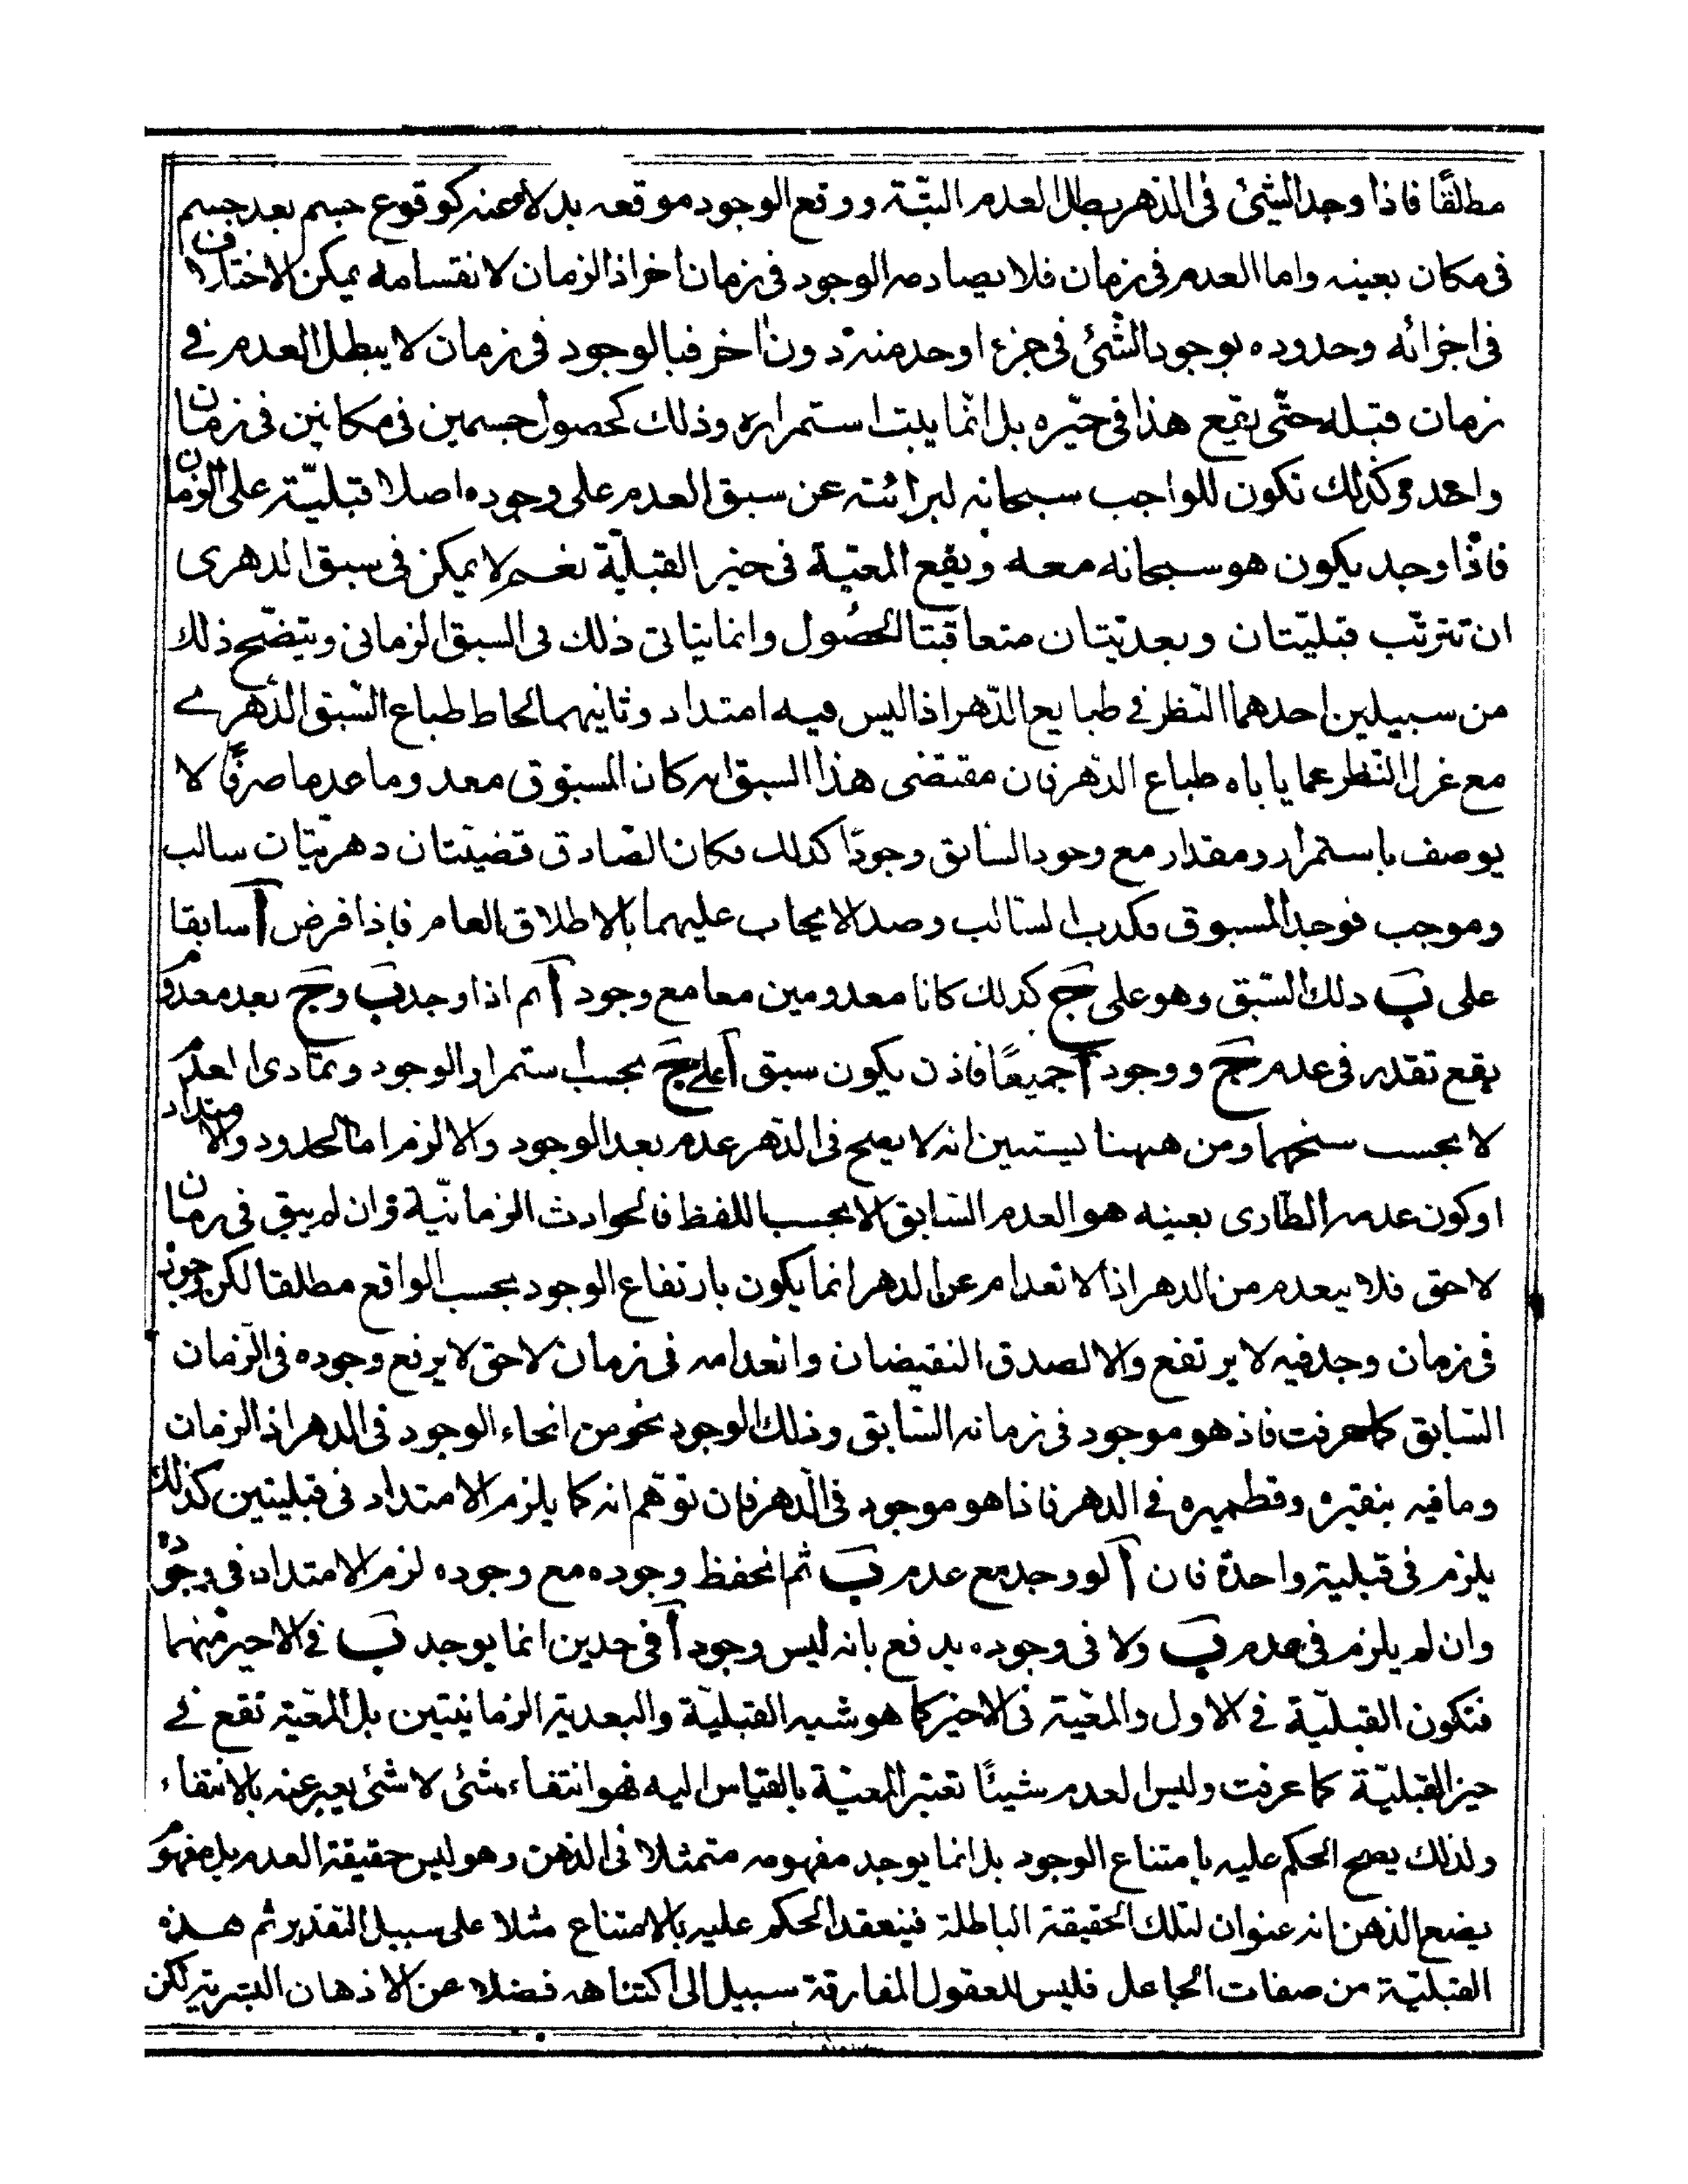 مطلقًا فاذا وجد الشيئ فى الدهر بطل العدم البتّة ووقع الوجود موقعه بدلا عنه كوقوع جسم بعد جسم
فى مكان بعينه واما العدم فى زمان فلا يصادمه الوجود فى زمان اخر اذ الزمان لانقسامه يمكن الاختلاف
فى اجزائه وحدوده بوجود الشئ فى جزء او حد منه دون اخر فبالوجود فى زمان لا يبطل العدم فے
زمان قبله حتّى يقع هذا فى حيّزه بل انّما يبت استمراره وذلك كحصول جسمين فى مكانين فى زمان
واحد وكذلك تكون للواجب سبحانه لبرائته عن سبق العدم على وجوده اصلا قبليّة على الزمان
فاذا وجد يكون هو سبحانه معه ويقع المعيّة فى حيز القبليّة نعم لا يمكن فى سبق الدهرى
ان تترتّب قبليّتان وبعديّتان متعاقبتا الحصُول وانما يتاتى ذلك فى السبق الزمانى ويتضح ذلك
من سبيلين احدهما النّظر فے طبايع الدّهر اذ ليس فيه امتداد وثانيهما لحاظ طباع السّبق الدّهرے
مع غزل النّظر عما ياباه طباع الدّهر فان مقتضى هذا السبق انه كان المسبوق معدوما عدما صرفًا لا
يوصف باستمرار ومقدار مع وجود السابق وجودًا كذلك فكان الصّادق قضيّتان دهريّتان سالب
وموجب فوجد المسبوق فكذب السّالب وصد الايجاب عليهما بالاطلاق العام فاذا فرض آ سابقا
على بَ ذلك السّبق وهو على جَ كذلك كانا معدومين معا مع وجود آ ثم اذا وجد بَ وجَ بعد معدوم
يقع تقدر فى عدم جَ ووجود آ جميعًا فاذن يكون سبق آ على جَ بحسب استمرار الوجود وتمادى العدم
لا بحسب سنخهما ومن ههنا يستبين انه لا يصح فى الدّهر عدم بعد الوجود والا لزم اما الحدود والامتداد
او كون عدمه الطّارى بعينه هو العدم السّابق الا بحسب اللفظ فالحوادث الزمانيّة وان لم يبق فى زمان
لاحق فلا يعدم من الدهر اذ الانعدام عن الدهر انما يكون بارتفاع الوجود بحسب الواقع مطلقا لكن وجوده
فى زمان وجد فيه لا يرتفع والا لصدق النقيضان وانعدامه فى زمان لاحق لا يرفع وجوده فى الزمان
السّابق كما عرفت فاذ هو موجود فى زمانه السّابق وذلك الوجود نحو من انحاء الوجود فى الدهر اذ الزمان
وما فيه بنقيره وقطميره فے الدهر فاذا هو موجود فى الدهر فان توهم انه كما يلزم الامتداد فى قبليتين كذلك
يلزم فى قبلية واحدة فان آ لو وجد مع عدم بَ ثم انحفظ وجوده مع وجوده لزم الامتداد فى وجوده
وان لم يلزم فى عدم بَ ولا فى وجوده يدفع بانه ليس وجود آ فى حدين انما يوجد بَ فے الاخير منهما
فتكون القبليّة فے الاول والمعيّة فى الاخير كما هو شبه القبليّة والبعدية الزمانيتين بل المعيّة تقع فے
حيز القبليّة كما عرفت وليس العدم شيئًا تعتبر المعيّة بالقياس اليه فهو انتفاء شئى لا شئى يعبر عنه بالانتفاء
ولذلك يصح الحكم عليه بامتناع الوجود بل انما يوجد مفهومه متمثلا فى الذهن وهو ليس حقيقة العدم بل مفهوم
يضع الذهن انه عنوان لتلك الحقيقة الباطلة فينعقد الحكم عليه بالامتناع مثلا على سبيل التقدير ثم هذه
القبليّة من صفات الجاعل فليس للعقول المفارقة سبيل الى اكتناهه فضلا عن الاذهان البشرية لكن